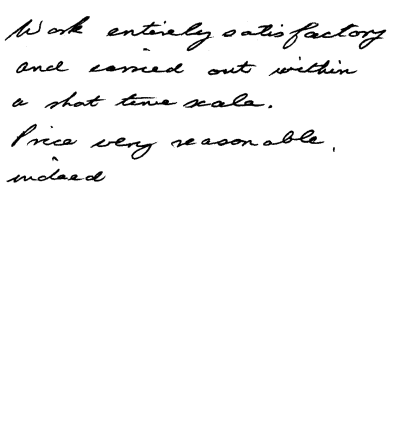 Work entirely satisfactory
and carried out within
a shot time scale.
Price very reasonable,
indeed